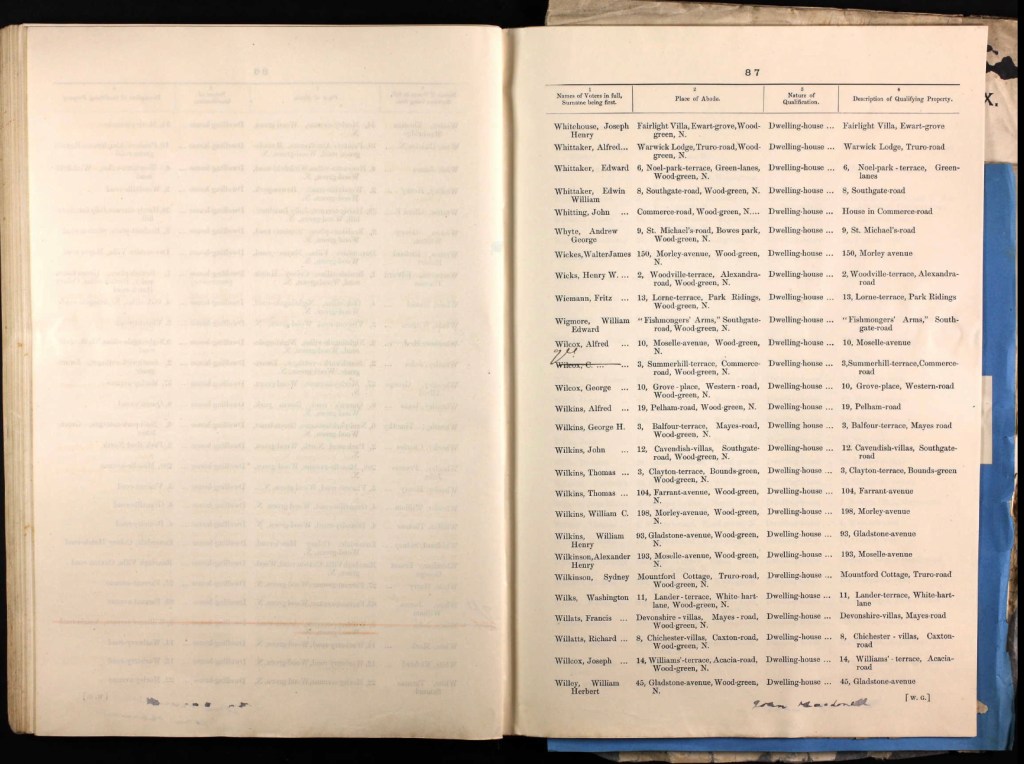 87
1 2 3 4
Names of Voters in full, Surname being first. Place of Abode. Nature of Qualification. Description of Qualifying Property.
Whitehouse, Joseph Fairlight Villa, Ewart-grove, Wood- Dwelling-house ... Fairlight Villa, Ewart-grove
Henry green, N.
Whittaker, Alfred... Warwick Lodge, Truro-road, Wood- Dwelling-house ... Warwick Lodge, Truro-road
green, N.
Whittaker, Edward 6, Noel-park-terrace, Green-lanes, Dwelling-house ... 6, Noel-park-terrace, Green-
Wood-green, N. lanes
Whittaker, Edwin 8, Southgate-road, Wood-green, N. Dwelling-house ... 8, Southgate-road
William
Whitting, John ... Commerce-road, Wood-green, N.... Dwelling-house ... House in Commerce-road
Whyte, Andrew 9, St. Michael's-road, Bowes park, Dwelling-house ... 9, St. Michael's-road
George Wood-green, N.
Wickes, Walter James 150, Morley-avenue, Wood-green, Dwelling-house ... 150, Morley avenue
N.
Wicks, Henry W. ... 2, Woodville-terrace, Alexandra- Dwelling-house ... 2, Woodville-terrace, Alexandra-
road, Wood-green, N. road
Wiemann, Fritz ... 13, Lorne-terrace, Park Ridings, Dwelling-house ... 13, Lorne-terrace, Park Ridings
Wood-green, N.
Wigmore, William "Fishmongers' Arms," Southgate- Dwelling-house ... "Fishmongers' Arms," South-
Edward road, Wood-green, N. gate-road
Wilcox, Alfred ... 10, Moselle-avenue, Wood-green, Dwelling-house ... 10, Moselle-avenue
N.
Wilcox, C. ... ... 3, Summerhill-terrace, Commerce- Dwelling-house ... 3, Summerhill-terrace, Commerce-
road, Wood-green, N. road
Wilcox, George ... 10, Grove-place, Western-road, Dwelling-house ... 10, Grove-place, Western-road
Wood-green, N.
Wilkins, Alfred ... 19, Pelham-road, Wood-green, N. Dwelling-house ... 19, Pelham-road
Wilkins, George H. 3, Balfour-terrace, Mayes-road, Dwelling house ... 3, Balfour-terrace, Mayes road
Wood-green, N.
Wilkins, John ... 12, Cavendish-villas, Southgate- Dwelling-house ... 12. Cavendish-villas, Southgate-
road, Wood-green, N. road
Wilkins, Thomas ... 3, Clayton-terrace, Bounds-green, Dwelling-house ... 3, Clayton-terrace, Bounds-green
Wood-green, N.
Wilkins, Thomas ... 104, Farrant-avenue, Wood-green, Dwelling-house ... 104, Farrant-avenue
N.
Wilkins, William C. 198, Morley-avenue, Wood-green, Dwelling-house ... 198, Morley-avenue
N.
Wilkins, William 93, Gladstone-avenue, Wood-green, Dwelling-house ... 93, Gladstone-avenue
Henry N.
Wilkinson, Alexander 193, Moselle-avenue, Wood-green, Dwelling-house ... 193, Moselle-avenue
Henry N.
Wilkinson, Sydney Mountford Cottage, Truro-road, Dwelling-house ... Mountford Cottage, Truro-road
Wood-green, N.
Wilks, Washington 11, Lander-terrace, White-hart- Dwelling-house ... 11, Lander-terrace, White-hart-
lane, Wood-green, N. lane
Willats, Francis ... Devonshire-villas, Mayes-road, Dwelling-house ... Devonshire-villas, Mayes-road
Wood-green, N.
Willatts, Richard ... 8, Chichester-villas, Caxton-road, Dwelling-house ... 8, Chichester-villas, Caxton-
Wood-green, N. road
Willcox, Joseph ... 14, Williams'-terrace, Acacia-road, Dwelling-house ... 14, Williams'-terrace, Acacia-
Wood-green, N. road
Willey, William 45, Gladstone-avenue, Wood-green, Dwelling-house ... 45, Gladstone-avenue
Herbert N.
[W. G.]
John Macdonell
X.